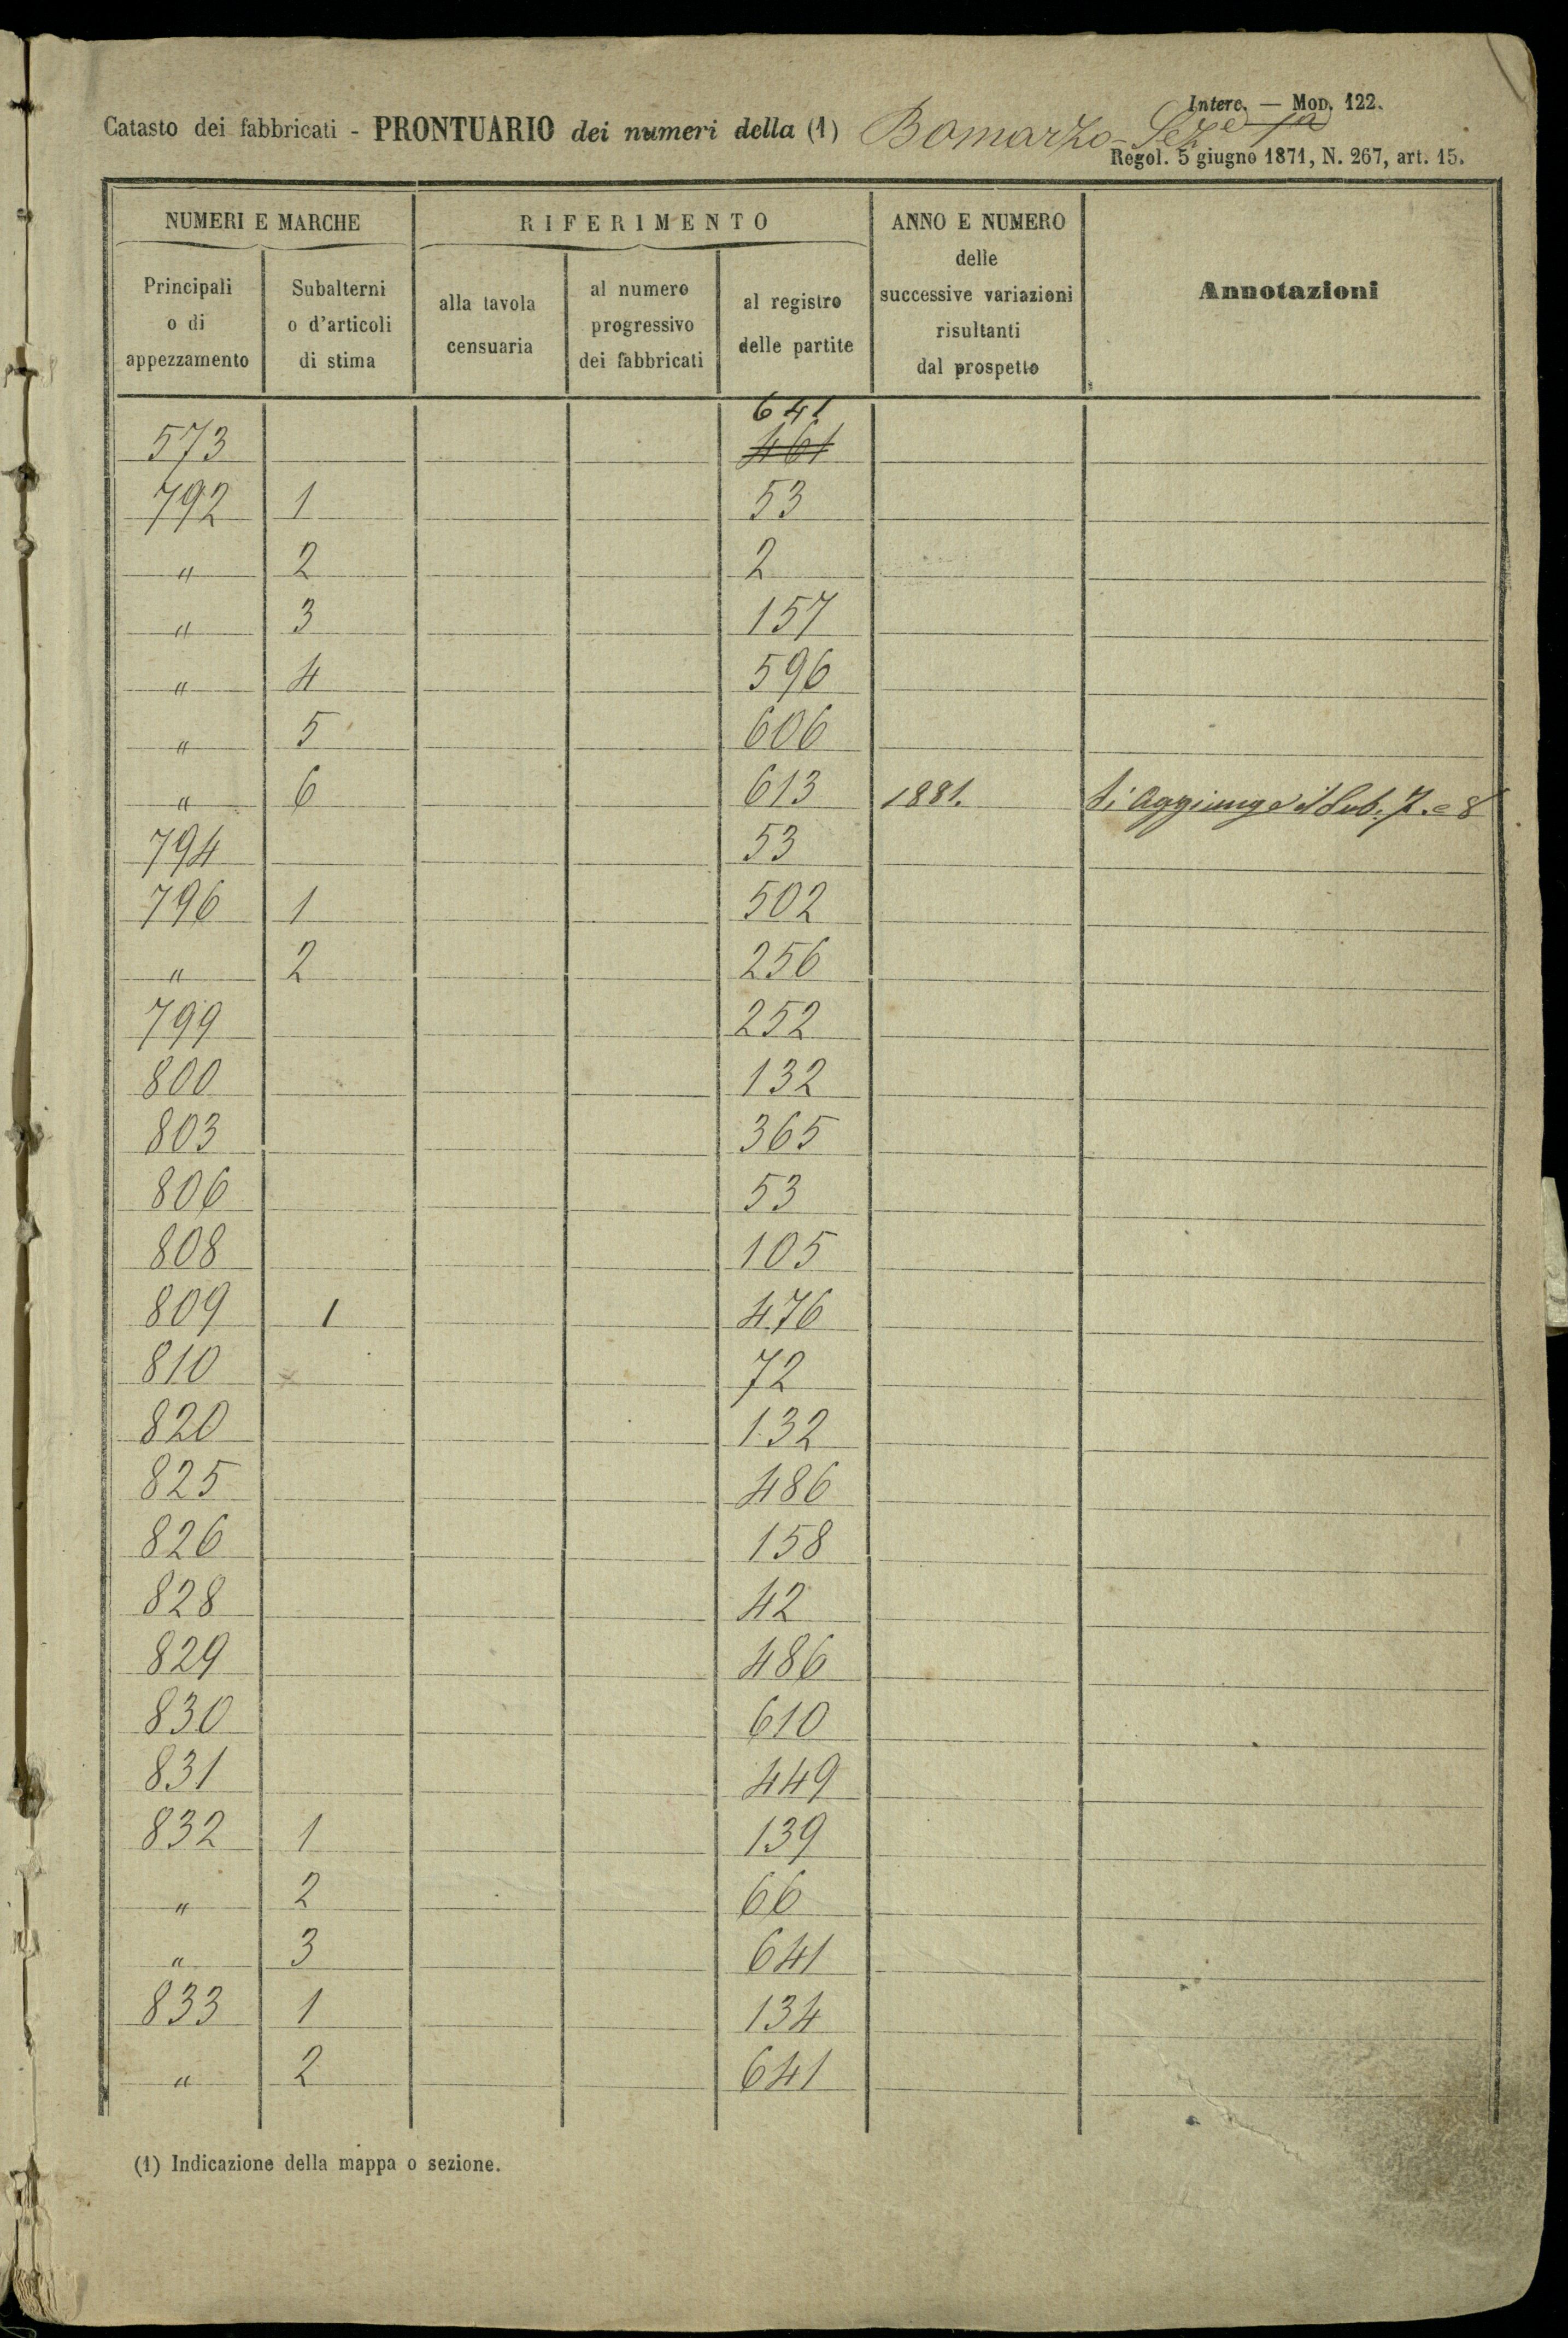 Interc. — Mod. 122.
Catasto dei fabbricati - PRONTUARIO dei numeri della (1) Bomarzo - Sez.e 1a
Regol. 5 giugno 1871, N. 267, art. 15.
NUMERI E MARCHE RIFERIMENTO ANNO E NUMERO delle successive variazioni risultanti dal prospetto Annotazioni
Principali o di appezzamento Subalterni o d'articoli di stima alla tavola censuaria al numero progressivo dei fabbricati al registro delle partite
641
573 461
792 1 53
" 2 2
" 3 157
" 4 596
" 5 606
" 6 613 1881. Si Aggiunge il Sub. 7. e 8
794 53
796 1 502
" 2 256
799 252
800 132
803 365
806 53
808 105
809 1 476
810 72
820 132
825 486
826 158
828 42
829 486
830 610
831 449
832 1 139
" 2 66
" 3 641
833 1 134
" 2 641
(1) Indicazione della mappa o sezione.